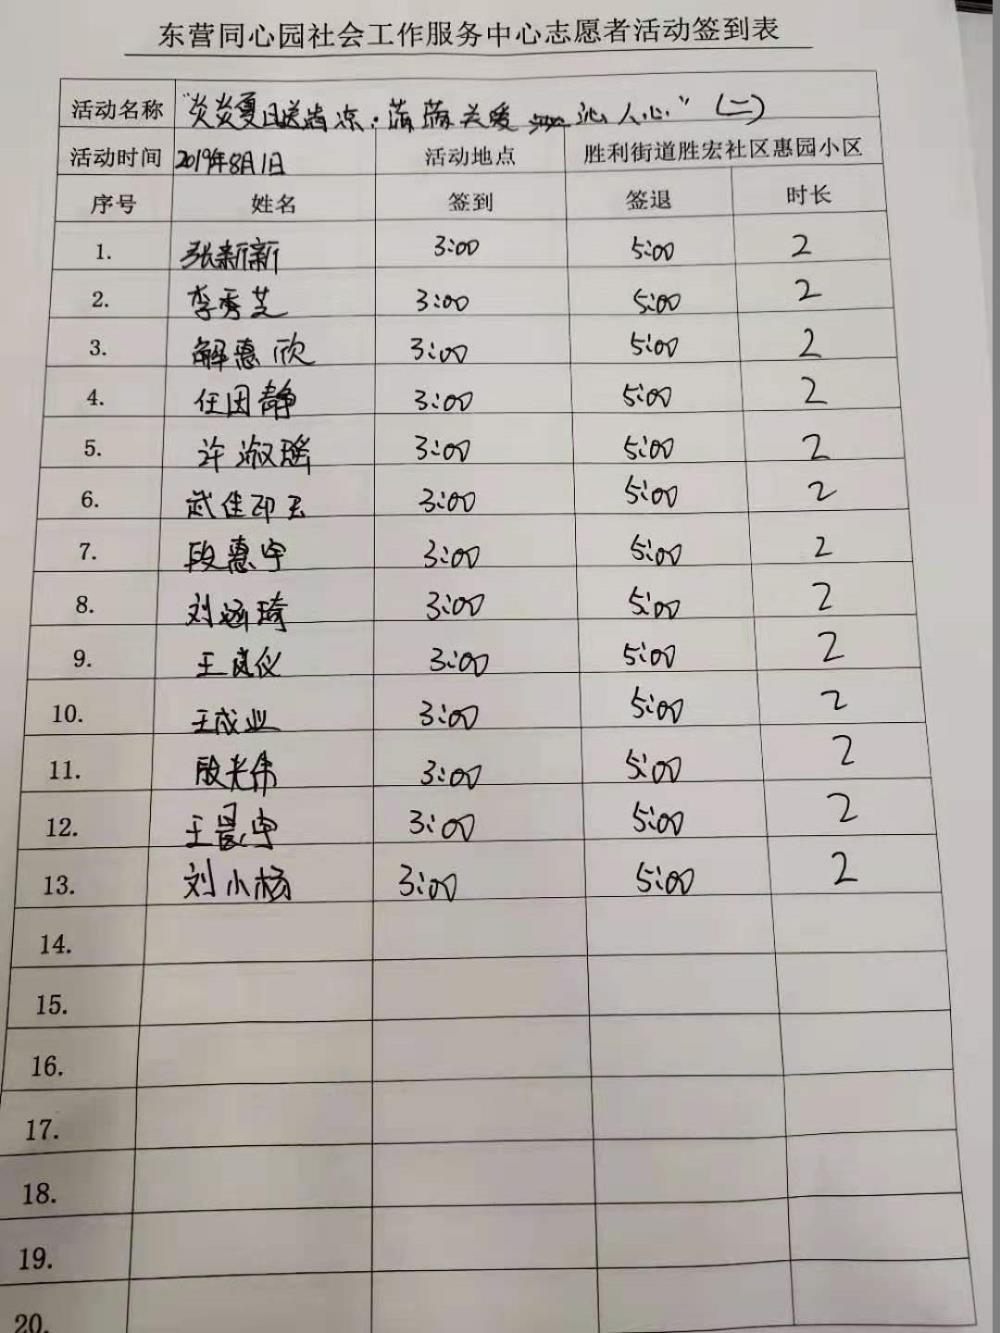 东营同心园社会工作服务中心志愿者活动签到表
活动名称 "炎炎夏日送清凉·滴滴关爱沁人心"(二)
活动时间 2019年8月1日 活动地点 胜利街道胜宏社区惠园小区
序号 姓名 签到 签退 时长
1. 张新新 3:00 5:00 2
2. 李秀芝 3:00 5:00 2
3. 解惠欣 3:00 5:00 2
4. 任因静 3:00 5:00 2
5. 许淑瑶 3:00 5:00 2
6. 武佳 3:00 5:00 2
7. 段惠宇 3:00 5:00 2
8. 刘涵琦 3:00 5:00 2
9. 王岚仪 3:00 5:00 2
10. 王成业 3:00 5:00 2
11. 殷光伟 3:00 5:00 2
12. 王晨宇 3:00 5:00 2
13. 刘小杨 3:00 5:00 2
14.
15.
16.
17.
18.
19.
20.